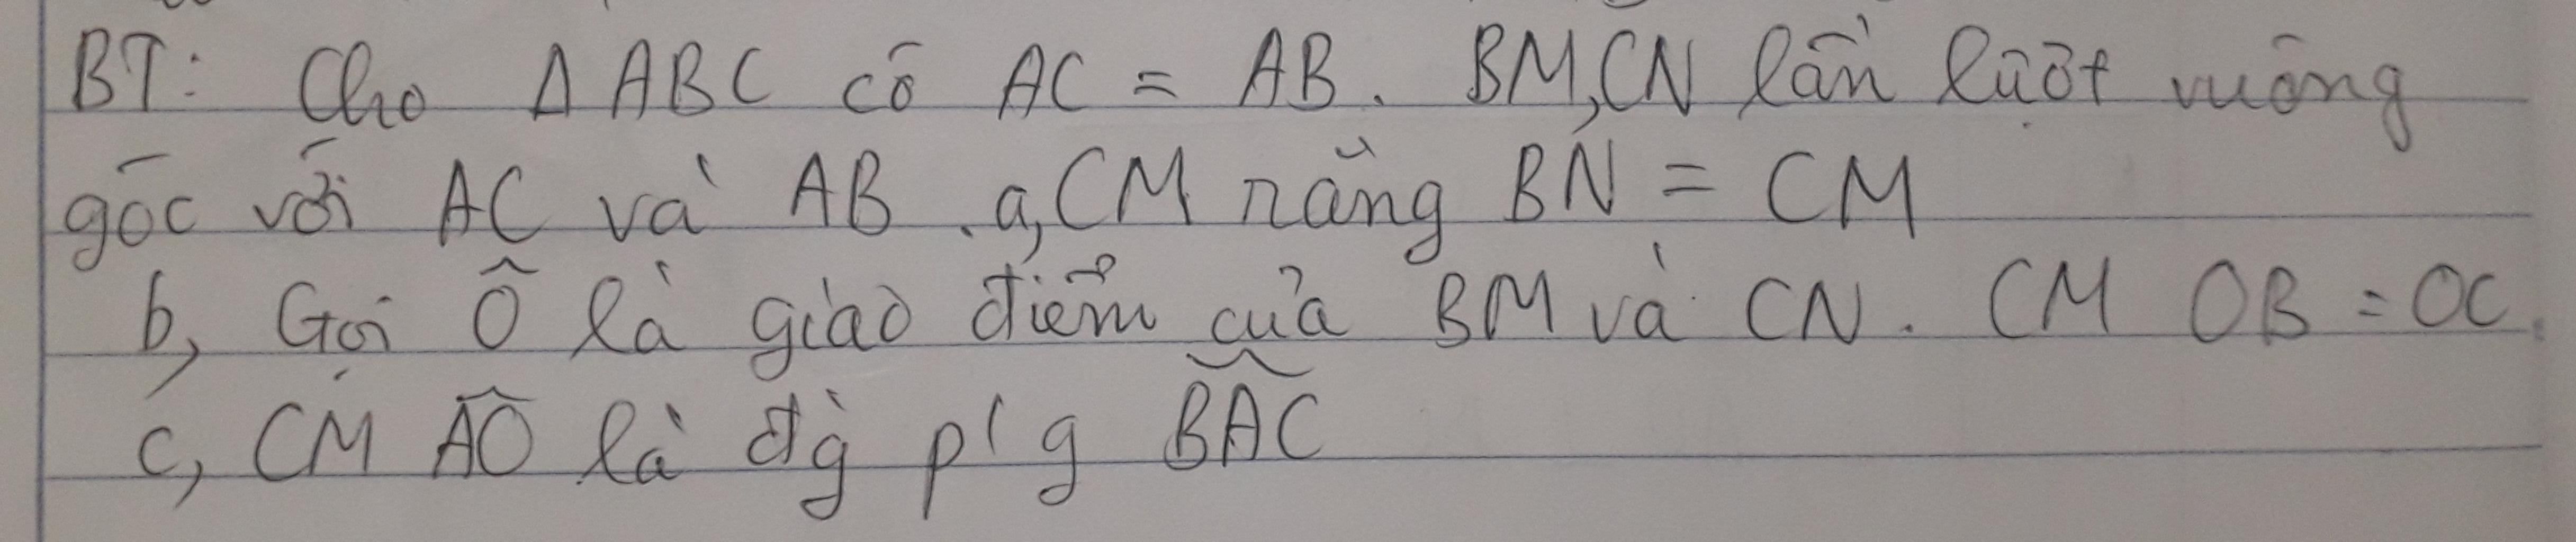 BT: Cho Δ ABC có AC = AB. BM, CN lần lượt vuông
góc với AC và AB. a, CM rằng BN = CM
b, Gọi O là giao điểm của BM và CN. CM OB = OC.
c, CM AO là đg p/g BAC